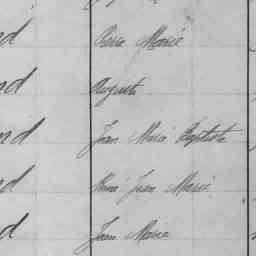 d Pierre Marie
d Auguste
nd Jean Marie Baptiste
d René Jean Marie
d Jean Marie